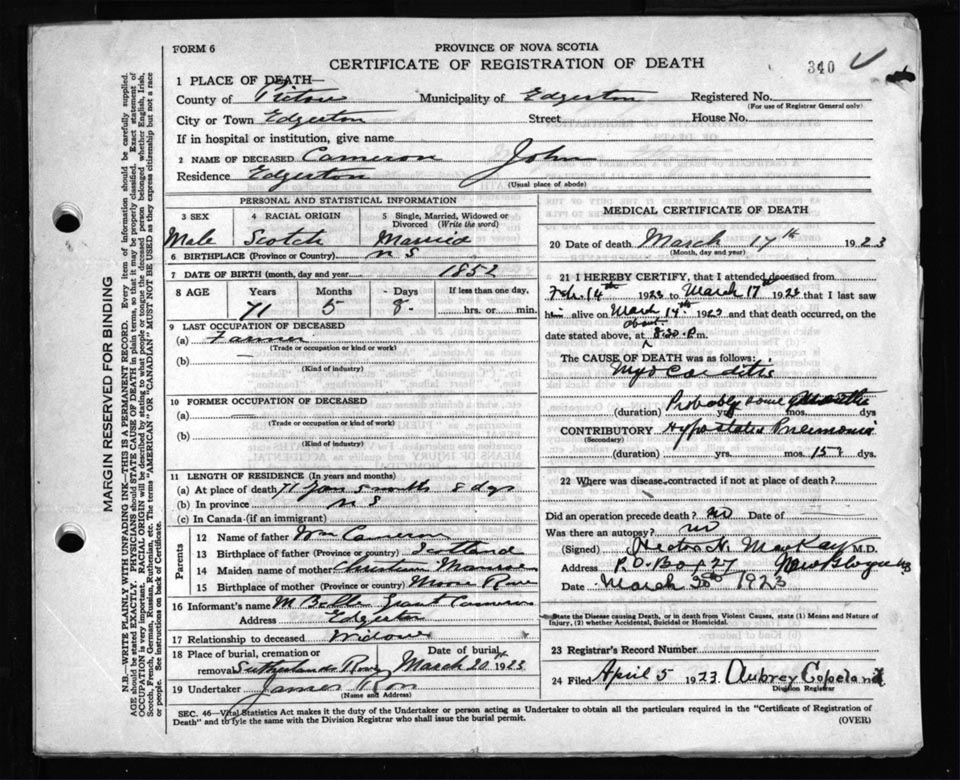 FORM 6
PROVINCE OF NOVA SCOTIA
CERTIFICATE OF REGISTRATION OF DEATH
340
1 PLACE OF DEATH—
County of Pictou Municipality of Edgerton Registered No.
(For use of Registrar General only)
City or Town Edgerton Street House No.
If in hospital or institution, give name
2 NAME OF DECEASED Cameron John
Residence Edgerton
(Usual place of abode)
PERSONAL AND STATISTICAL INFORMATION
3 SEX 4 RACIAL ORIGIN 5 Single, Married, Widowed or Divorced (Write the word)
Male Scotch Married
6 BIRTHPLACE (Province or Country) N S
7 DATE OF BIRTH (month, day and year) 1852
8 AGE Years Months Days If less than one day,
71 5 8 hrs. or min.
9 LAST OCCUPATION OF DECEASED
(a) Farmer
(Trade or occupation or kind or work)
(b)
(Kind of industry)
10 FORMER OCCUPATION OF DECEASED
(a)
(Trade or occupation or kind of work)
(b)
(Kind of industry)
11 LENGTH OF RESIDENCE (In years and months)
(a) At place of death 71 5 8 dys
(b) In province N S
(c) In Canada (if an immigrant)
Parents
12 Name of father Wm Cameron
13 Birthplace of father (Province or country) Scotland
14 Maiden name of mother Christian Munroe
15 Birthplace of mother (Province or country) Moose River
16 Informant's name M Bella Grant Cameron
Address Edgerton
17 Relationship to deceased Widow
18 Place of burial, cremation or removal Sutherlands River Date of burial March 20 1923
19 Undertaker James
(Name and Address)
MEDICAL CERTIFICATE OF DEATH
20 Date of death March 17th 1923
(Month, day and year)
21 I HEREBY CERTIFY, that I attended deceased from
Feb. 14th 1923 to March 17th 1923 that I last saw
him alive on March 14th 1923 and that death occurred, on the
date stated above, at about 8:30 P.m.
The CAUSE OF DEATH was as follows:
Myocarditis
Probably some months
(duration) yrs. mos. dys
CONTRIBUTORY Hypostatic Pneumonia
(Secondary)
(duration) yrs. mos. 15 dys.
22 Where was disease contracted if not at place of death?
Did an operation precede death? no Date of
Was there an autopsy? no
(Signed) Hector H. MacKay M.D.
Address P.O. Box 27 New Glasgow NS
Date March 30th 1923
State the Disease causing Death, or in death from Violent Causes, state (1) Means and Nature of
Injury, (2) whether Accidental, Suicidal or Homicidal.
23 Registrar's Record Number
24 Filed April 5 1923. Aubrey Copeland
Division Registrar
SEC. 46—Vital Statistics Act makes it the duty of the Undertaker or person acting as Undertaker to obtain all the particulars required in the "Certificate of Registration of
Death" and to fyle the same with the Division Registrar who shall issue the burial permit.
(OVER)
MARGIN RESERVED FOR BINDING
N.B.—WRITE PLAINLY WITH UNFADING INK—THIS IS A PERMANENT RECORD. Every item of information should be carefully supplied.
AGE should be stated EXACTLY. PHYSICIANS should STATE CAUSE OF DEATH in plain terms, so that it may be properly classified. Exact statement of
OCCUPATION is very important. RACIAL ORIGIN will be described by stating to what people or tongue the deceased person belonged whether English, Irish,
Scotch, French, German, Russian, Ruthenian, etc. The terms "AMERICAN" or "CANADIAN" MUST NOT BE USED as they express citizenship but not a race
or people. See instructions on back of Certificate.